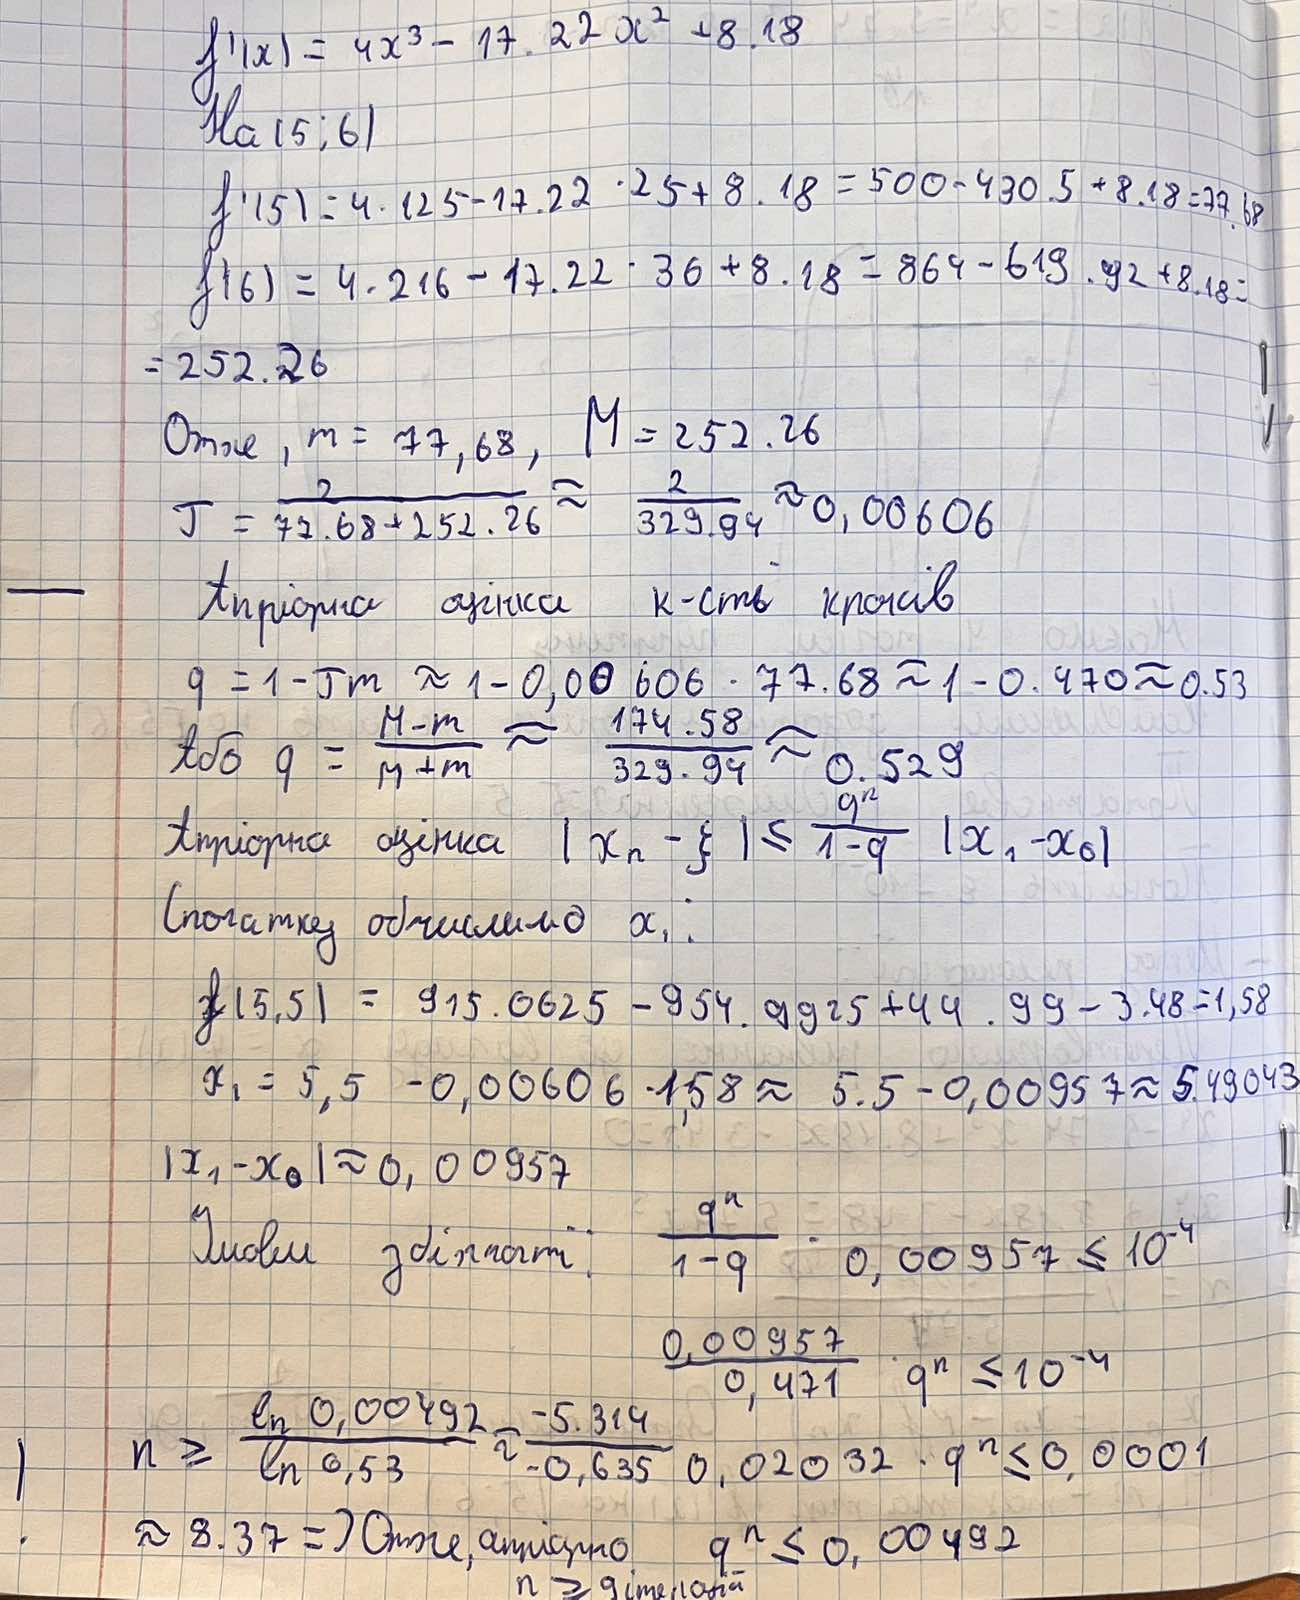 f'(x) = 4x³ - 17.22x² + 8.18
На (5; 6)
f'(5) = 4·125 - 17.22·25 + 8.18 = 500 - 430.5 + 8.18 = 77.68
f'(6) = 4·216 - 17.22·36 + 8.18 = 864 - 619.92 + 8.18 =
= 252.26
Отже, m = 77,68, M = 252.26
τ = 2/(77.68 + 252.26) ≈ 2/329.94 ≈ 0,00606
Апріорна оцінка к-сть кроків
q = 1 - τm ≈ 1 - 0,00606 · 77.68 ≈ 1 - 0.470 ≈ 0.53
Або q = (M - m)/(M + m) ≈ 174.58/329.94 ≈ 0.529
Апріорна оцінка |xₙ - ξ| ≤ qⁿ/(1-q) |x₁ - x₀|
Спочатку обчислимо x₁:
f(5,5) = 915.0625 - 954.9925 + 44.99 - 3.48 = 1,58
x₁ = 5,5 - 0,00606 · 1,58 ≈ 5.5 - 0,00957 ≈ 5.49043
|x₁ - x₀| ≈ 0,00957
Умови збіжності: qⁿ/(1-q) · 0,00957 ≤ 10⁻⁴
0,00957/0,471 · qⁿ ≤ 10⁻⁴
n ≥ ln 0,00492/ln 0,53 ≈ -5.314/-0,635 0,02032 · qⁿ ≤ 0,0001
≈ 8.37 => Отже, апріорно qⁿ ≤ 0,00492
n ≥ 9 ітерацій